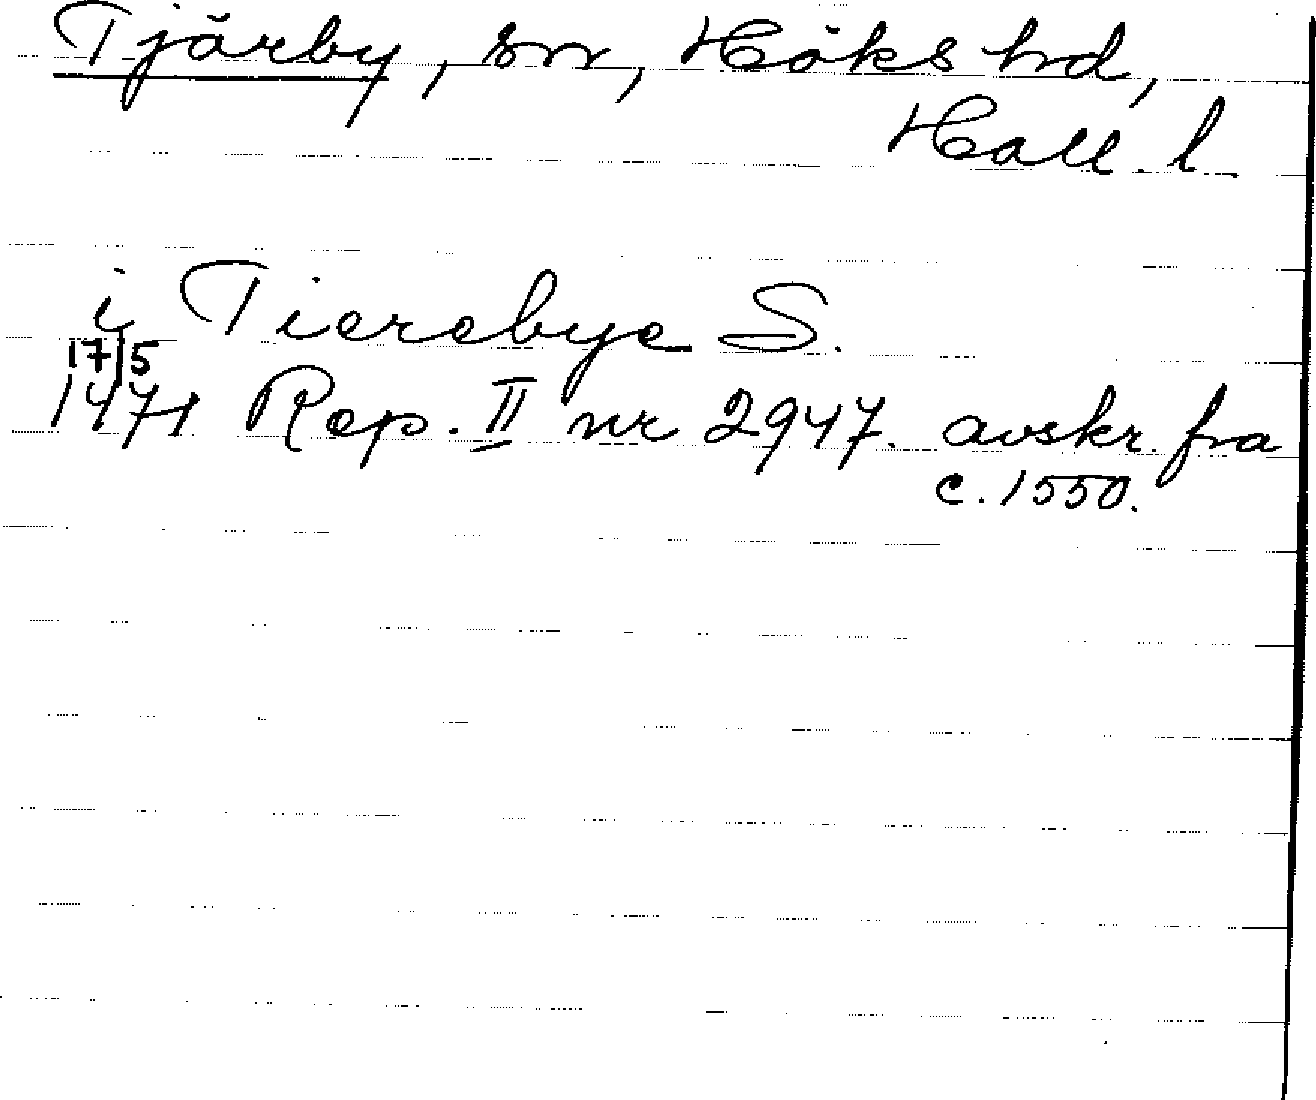 Tjärby, sn, Höks hd,
Hall. l.
i Tierebye S.
17/5
1471 Rep. II nr 2947. avskr. fra
c. 1550.